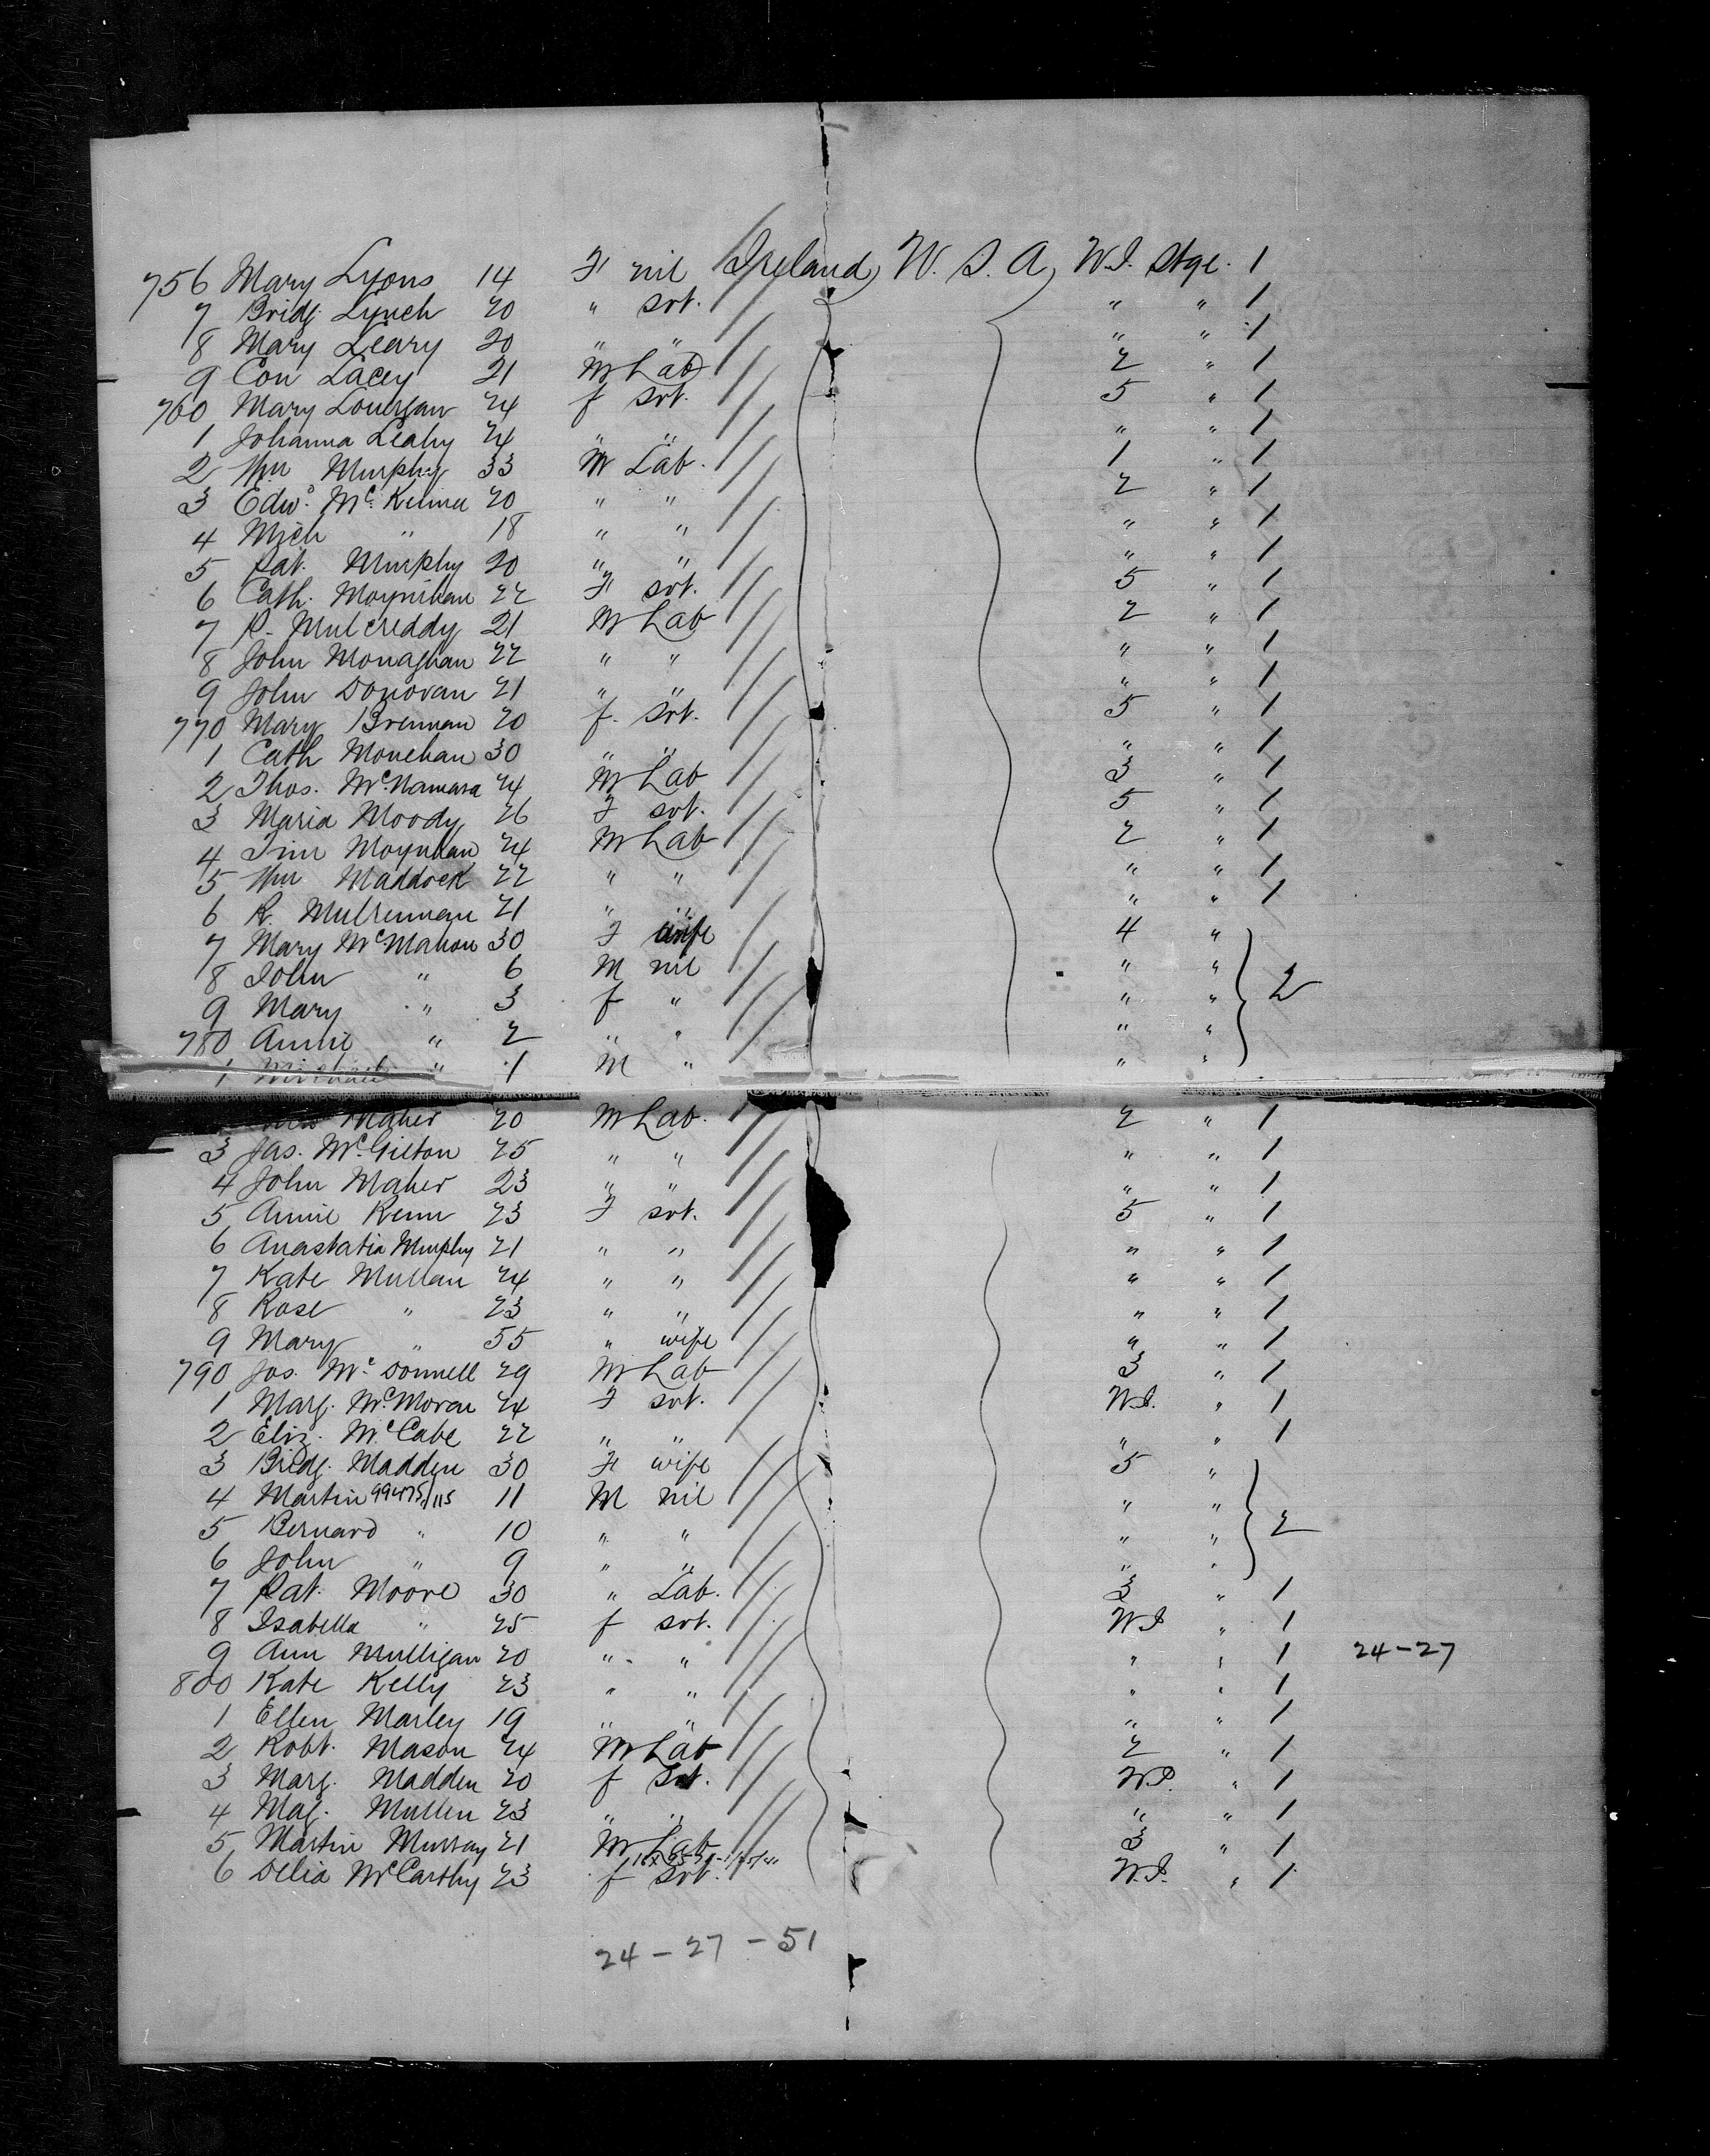 756 Mary Lyons 14 F nil Ireland, U. S. A, W.S. Stge. 1
7 Bridg. Lynch 20 " svt. " " 1
8 Mary Leary 20 " " " " 1
9 Con Lacey 21 M Lab 2 " 1
760 Mary Lourgan 24 f svt. 5 " 1
1 Johanna Leahy 24 " " " " 1
2 Wm Murphy 33 M Lab. 1 " 1
3 Edwd. McKenna 20 " " 2 " 1
4 Mich " 18 " " " " 1
5 Pat. Murphy 20 " " " " 1
6 Cath. Moynihan 22 F svt. 5 " 1
7 P. Mulcreddy 21 M Lab 2 " 1
8 John Monaghan 22 " " " " 1
9 John Donovan 21 " " " " 1
770 Mary Brennan 20 f. svt. 5 " 1
1 Cath Monehan 30 " " " " 1
2 Thos. McNamara 24 M Lab 3 " 1
3 Maria Moody 26 F svt. 5 " 1
4 Tim Moynihan 24 M Lab 2 " 1
5 Wm Maddock 22 " " " " 1
6 R. Mulrennan 21 " " " " 1
7 Mary McMahon 30 F wife 4 "
8 John " 6 M nil " " 2
9 Mary " 3 f " " "
780 Annie " 2 " " " "
1 Michael " 1 M " " "
Maher 20 M Lab. 2 " 1
3 Jas. McGilton 25 " " " " 1
4 John Maher 23 " " " " 1
5 Annie Kenn 23 F svt. 5 " 1
6 Anastatia Murphy 21 " " " " 1
7 Kate Mullan 24 " " " " 1
8 Rose " 23 " " " " 1
9 Mary " 55 " wife " " 1
790 Jos. McDonnell 29 M Lab 3 " 1
1 Marg. McMoran 24 F svt. W.S. " 1
2 Eliz. McCabe 22 " " " " 1
3 Bridg. Madden 30 F wife 5 "
4 Martin 99475/115 11 M nil " "
5 Bernard " 10 " " " " 2
6 John " 9 " " " "
7 Pat. Moore 30 " Lab. 3 " 1
8 Isabella " 25 f svt. W.S " 1
9 Ann Mulligan 20 " " " " 1 24-27
800 Kate Kelly 23 " " " " 1
1 Ellen Marley 19 " " " " 1
2 Robt. Mason 24 M Lab 2 " 1
3 Marg. Madden 20 f svt. W.S. " 1
4 Mag. Mullen 23 " " " " 1
5 Martin Murray 21 M Lab 3 " 1
6 Delia McCarthy 23 f svt. W.S. " 1
24 - 27 - 51